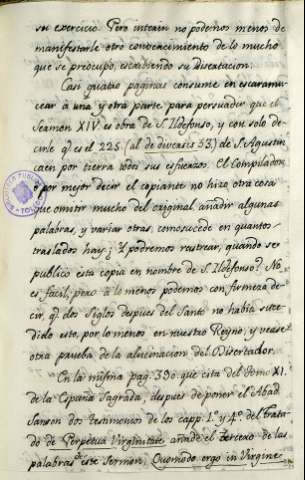 su exercicio. Pero interin no podemos menos de
manifestarle otro convencimiento de lo mucho
que se preocupó, escribiendo su Disertacion.
Casi quatro paginas consume en escaramu-
cear à una y otra parte para persuadir que el
Sermon XIV es obra de S. Ildefonso, y con solo de-
cirle q.e es el 225 (al de diversis 53.) de S. Agustin
caen por tierra todos sus esfuerzos. El Compilador,
ò por mejor decir el copiante no hizo otra cosa
que omitir mucho del original, añadir algunas
palabras, y variar otras, como sucede en quantos
traslados hay. ¿Y podremos rastrear, quando se
publicó esta copia en nombre de S. Ildefonso? No
es facil; pero à lo menos podemos con firmeza de-
cir, q.e dos siglos despues del Santo no habia suce-
dido esto, por lo menos en nuestro Reyno; y vease
otra prueba de la alucinacion del Disertador.
En la misma pag. 390 que cita del tomo XI.
de la España Sagrada, despues de poner el Abad
Sanson dos testimonios de los capp. 1.º y 4.º del Trata-
do de Perpetua Virginitate añade el tercero de las
palabras de este Sermon, Quomodo ergo in Virgine